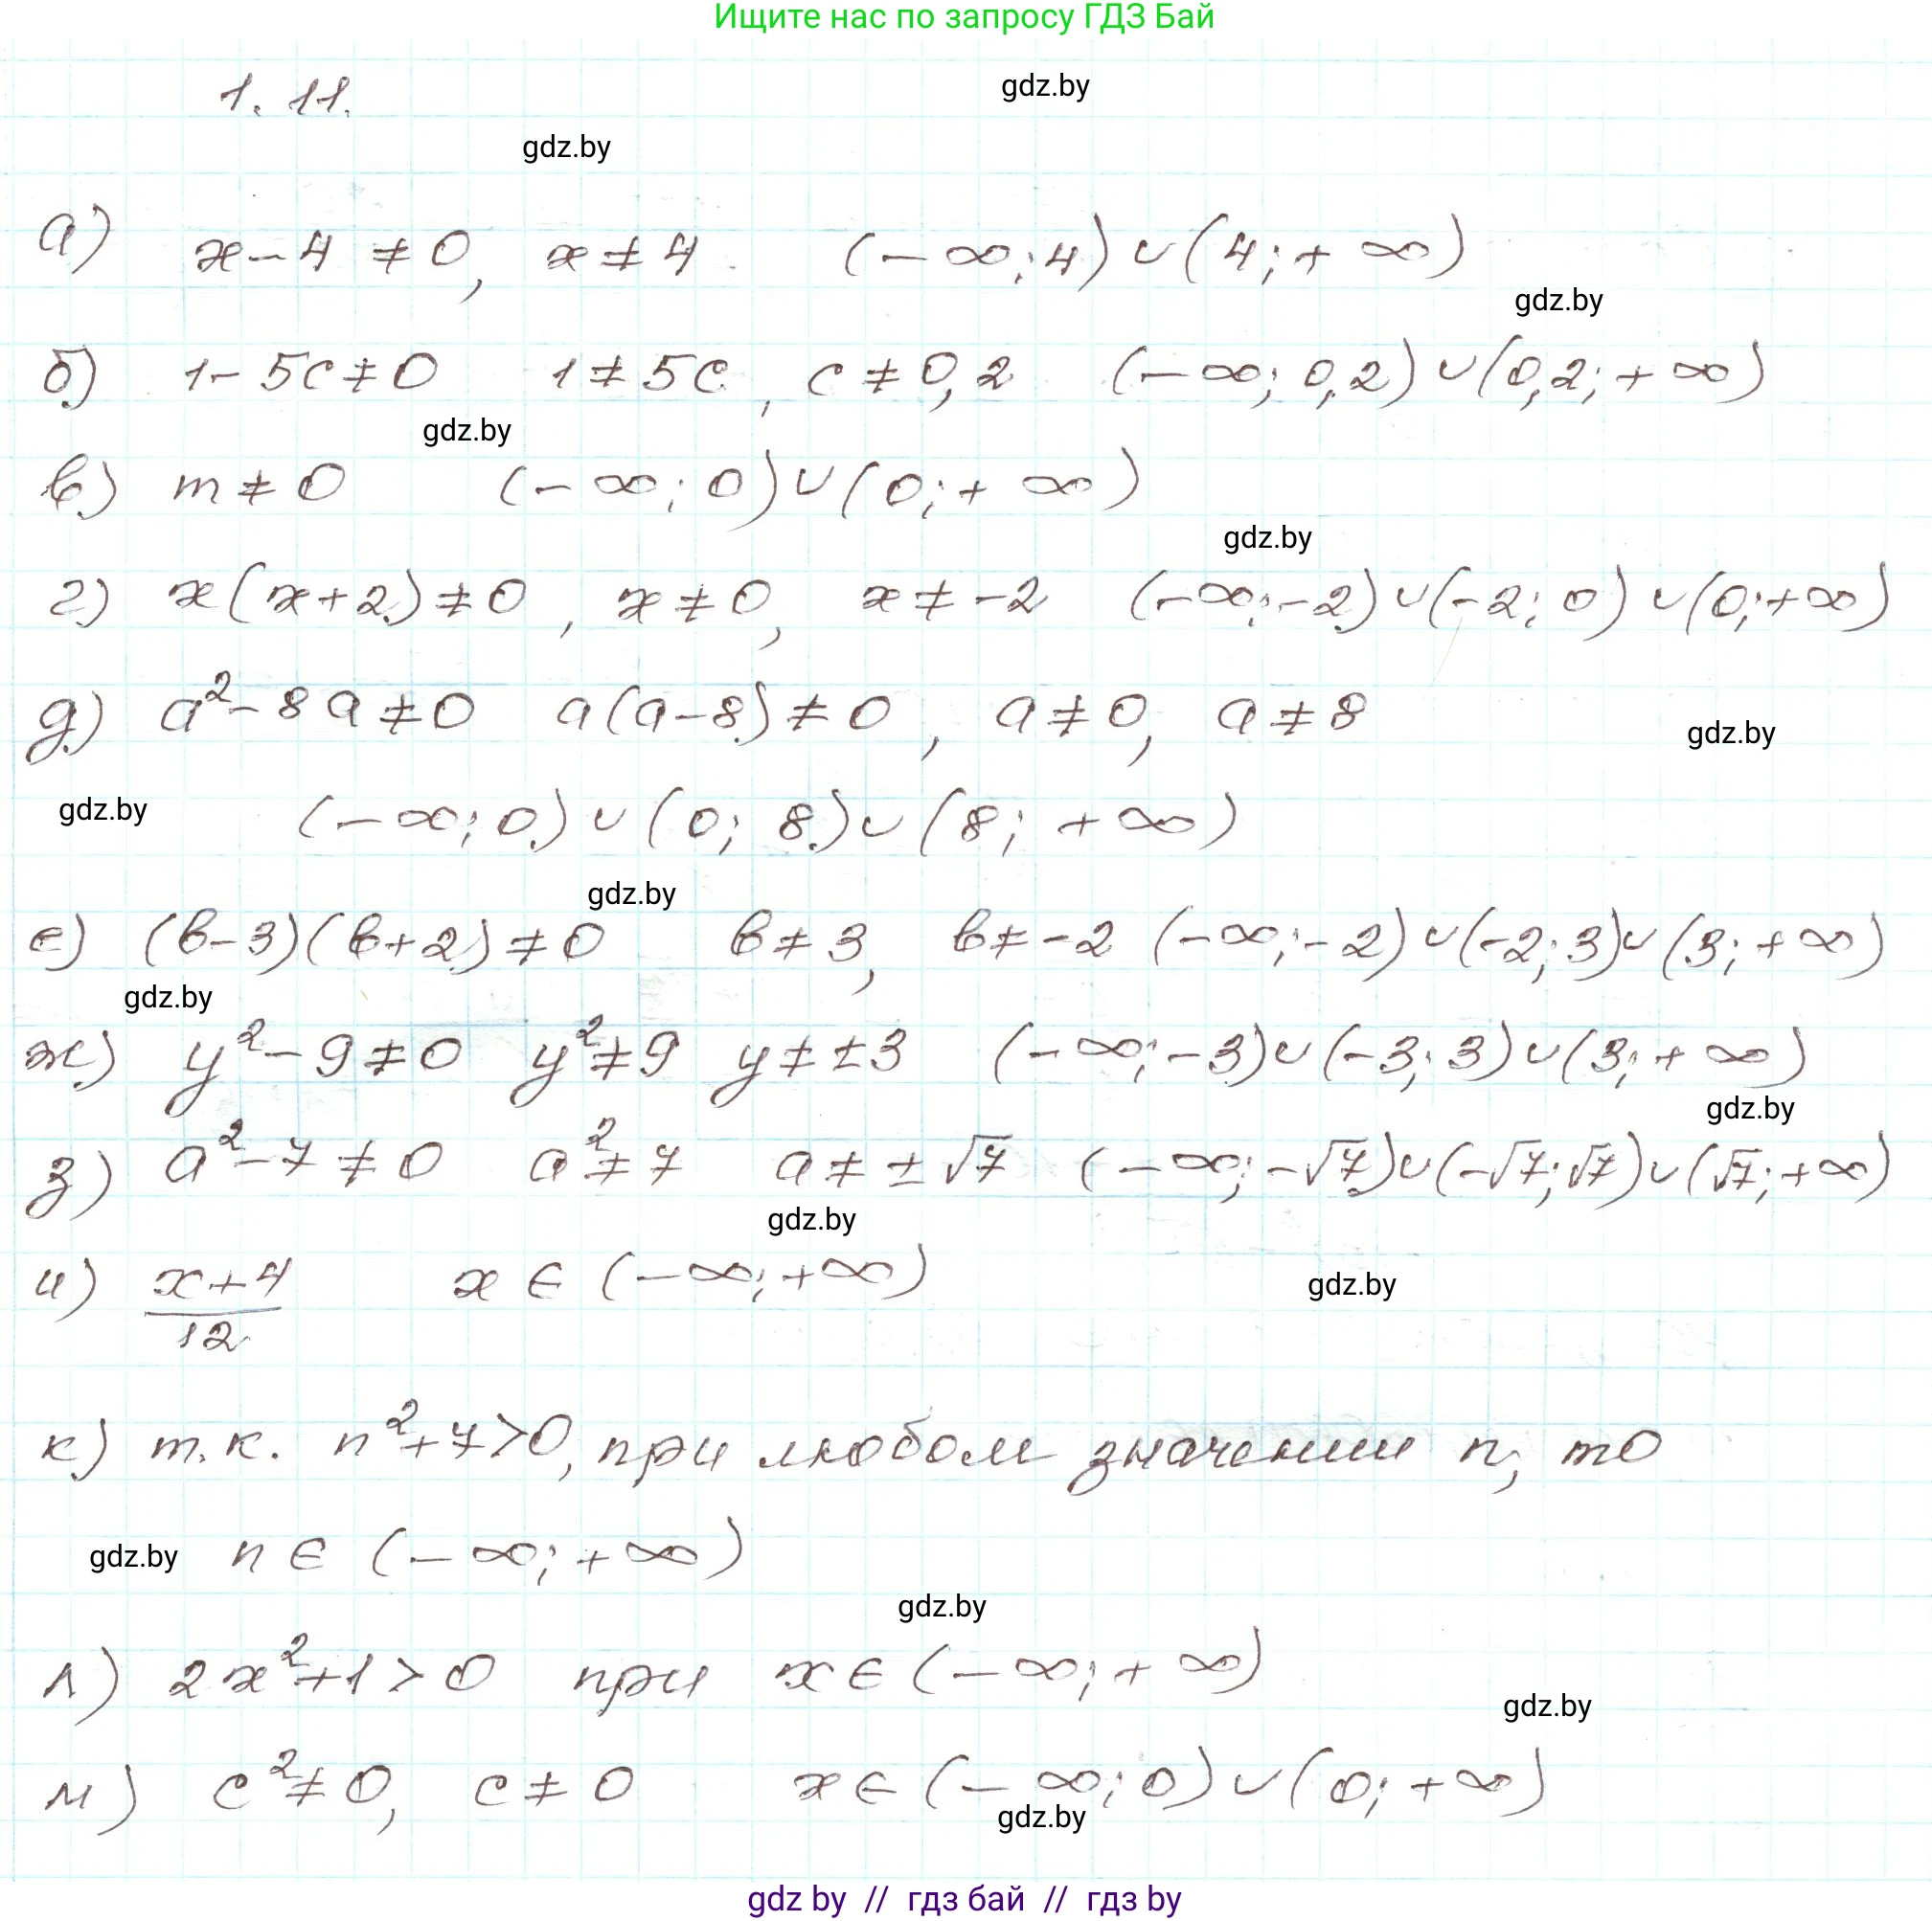 Ищите нас по запросу ГДЗ Бай
1.11.
gdz.by
gdz.by
а) x-4≠0, x≠4. (-∞;4)∪(4;+∞)
gdz.by
б) 1-5c≠0 1≠5c, c≠0,2 (-∞; 0,2)∪(0,2; +∞)
gdz.by
в) m≠0 (-∞; 0)∪(0;+∞)
gdz.by
г) x(x+2)≠0, x≠0, x≠-2 (-∞;-2)∪(-2;0)∪(0;+∞)
д) a²-8a≠0 a(a-8)≠0, a≠0, a≠8
gdz.by
gdz.by
(-∞;0)∪(0; 8)∪(8; +∞)
gdz.by
е) (b-3)(b+2)≠0 b≠3, b≠-2 (-∞;-2)∪(-2;3)∪(3;+∞)
gdz.by
ж) y²-9≠0 y²≠9 y≠±3 (-∞;-3)∪(-3;3)∪(3;+∞)
gdz.by
з) a²-7≠0 a²≠7 a≠±√7 (-∞;-√7)∪(-√7;√7)∪(√7;+∞)
gdz.by
и) x+4 x∈(-∞;+∞)
12
gdz.by
к) т.к. n²+7>0, при любом значении n, то
gdz.by n∈(-∞;+∞)
gdz.by
л) 2x²+1>0 при x∈(-∞;+∞)
gdz.by
м) c²≠0, c≠0 x∈(-∞;0)∪(0;+∞)
gdz.by
gdz by // гдз бай // гдз by